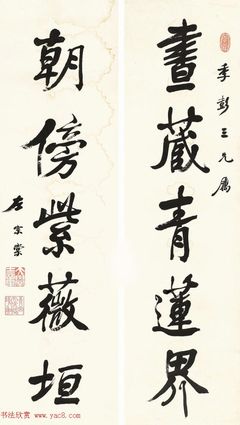 季彭三兄属
晝藏青蓮界
朝傍紫薇垣
左宗棠
书法欣赏 www.yac8.com